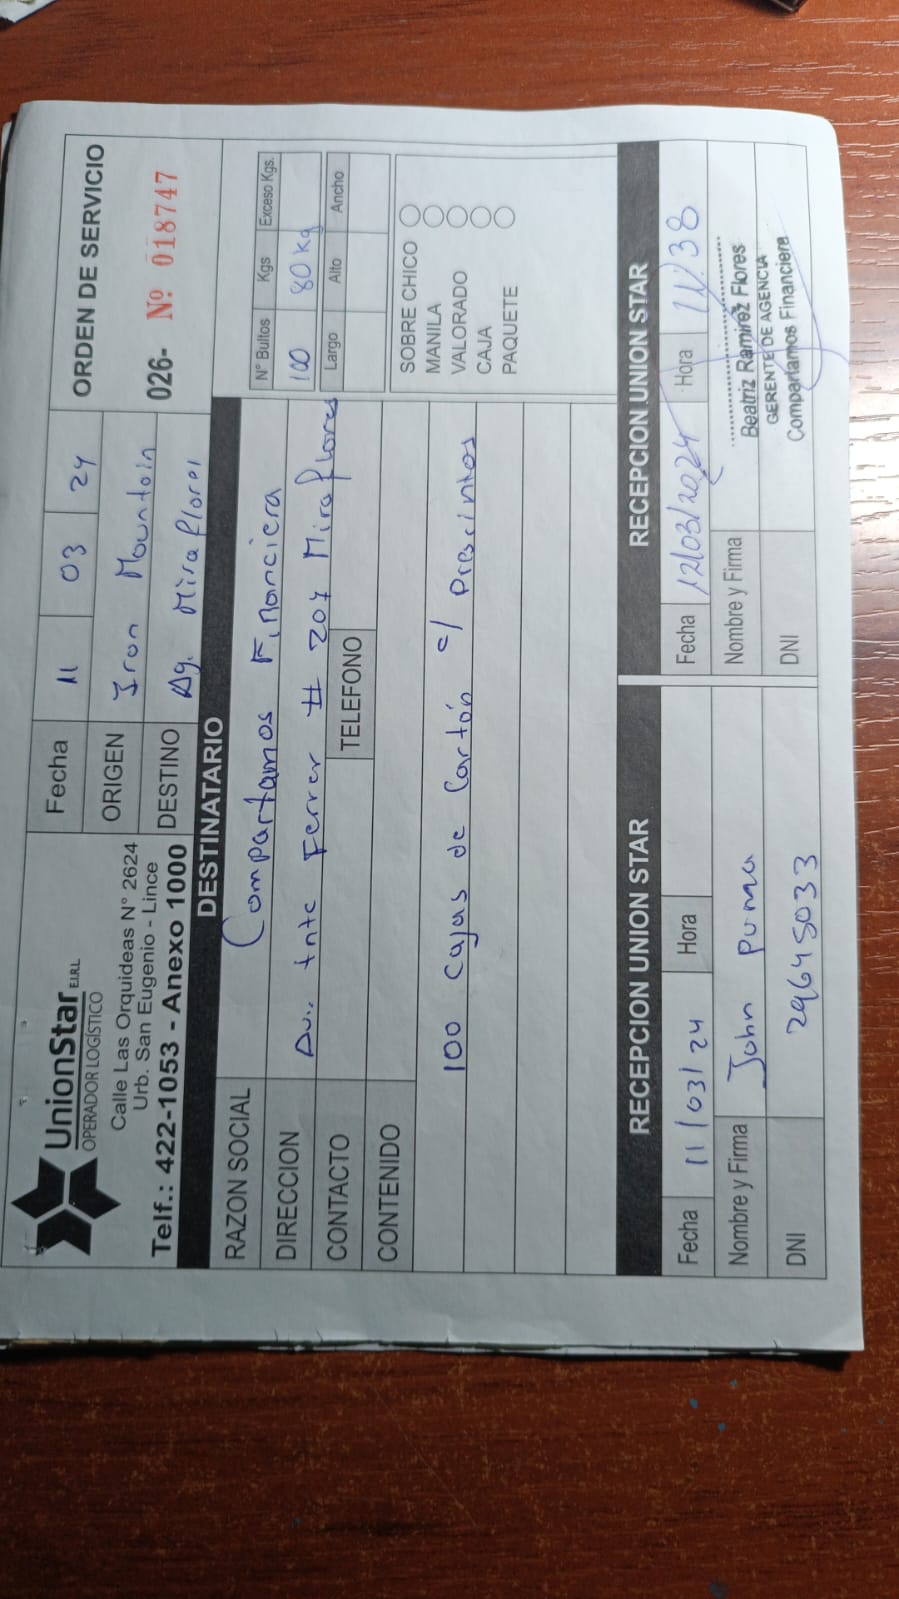 UnionStar E.I.R.L.
OPERADOR LOGÍSTICO
Calle Las Orquideas N° 2624
Urb. San Eugenio - Lince
Telf.: 422-1053 - Anexo 1000
Fecha 11 03 24
ORIGEN Iron Mountain
DESTINO Ag. Miraflores
ORDEN DE SERVICIO
026- Nº 018747
DESTINATARIO
RAZON SOCIAL Compartamos Financiera
DIRECCION Av. tnte Ferrer # 207 Miraflores
CONTACTO TELEFONO
CONTENIDO
100 Cajas de Cartón c/ Prescintos
N° Bultos Kgs Exceso Kgs.
100 80 kg
Largo Alto Ancho
SOBRE CHICO
MANILA
VALORADO
CAJA
PAQUETE
RECEPCION UNION STAR
Fecha 11/03/24 Hora
Nombre y Firma John Puma
DNI 29645033
RECEPCION UNION STAR
Fecha 12/03/2024 Hora 11:38
Nombre y Firma
Beatriz Ramirez Flores
GERENTE DE AGENCIA
Compartamos Financiera
DNI